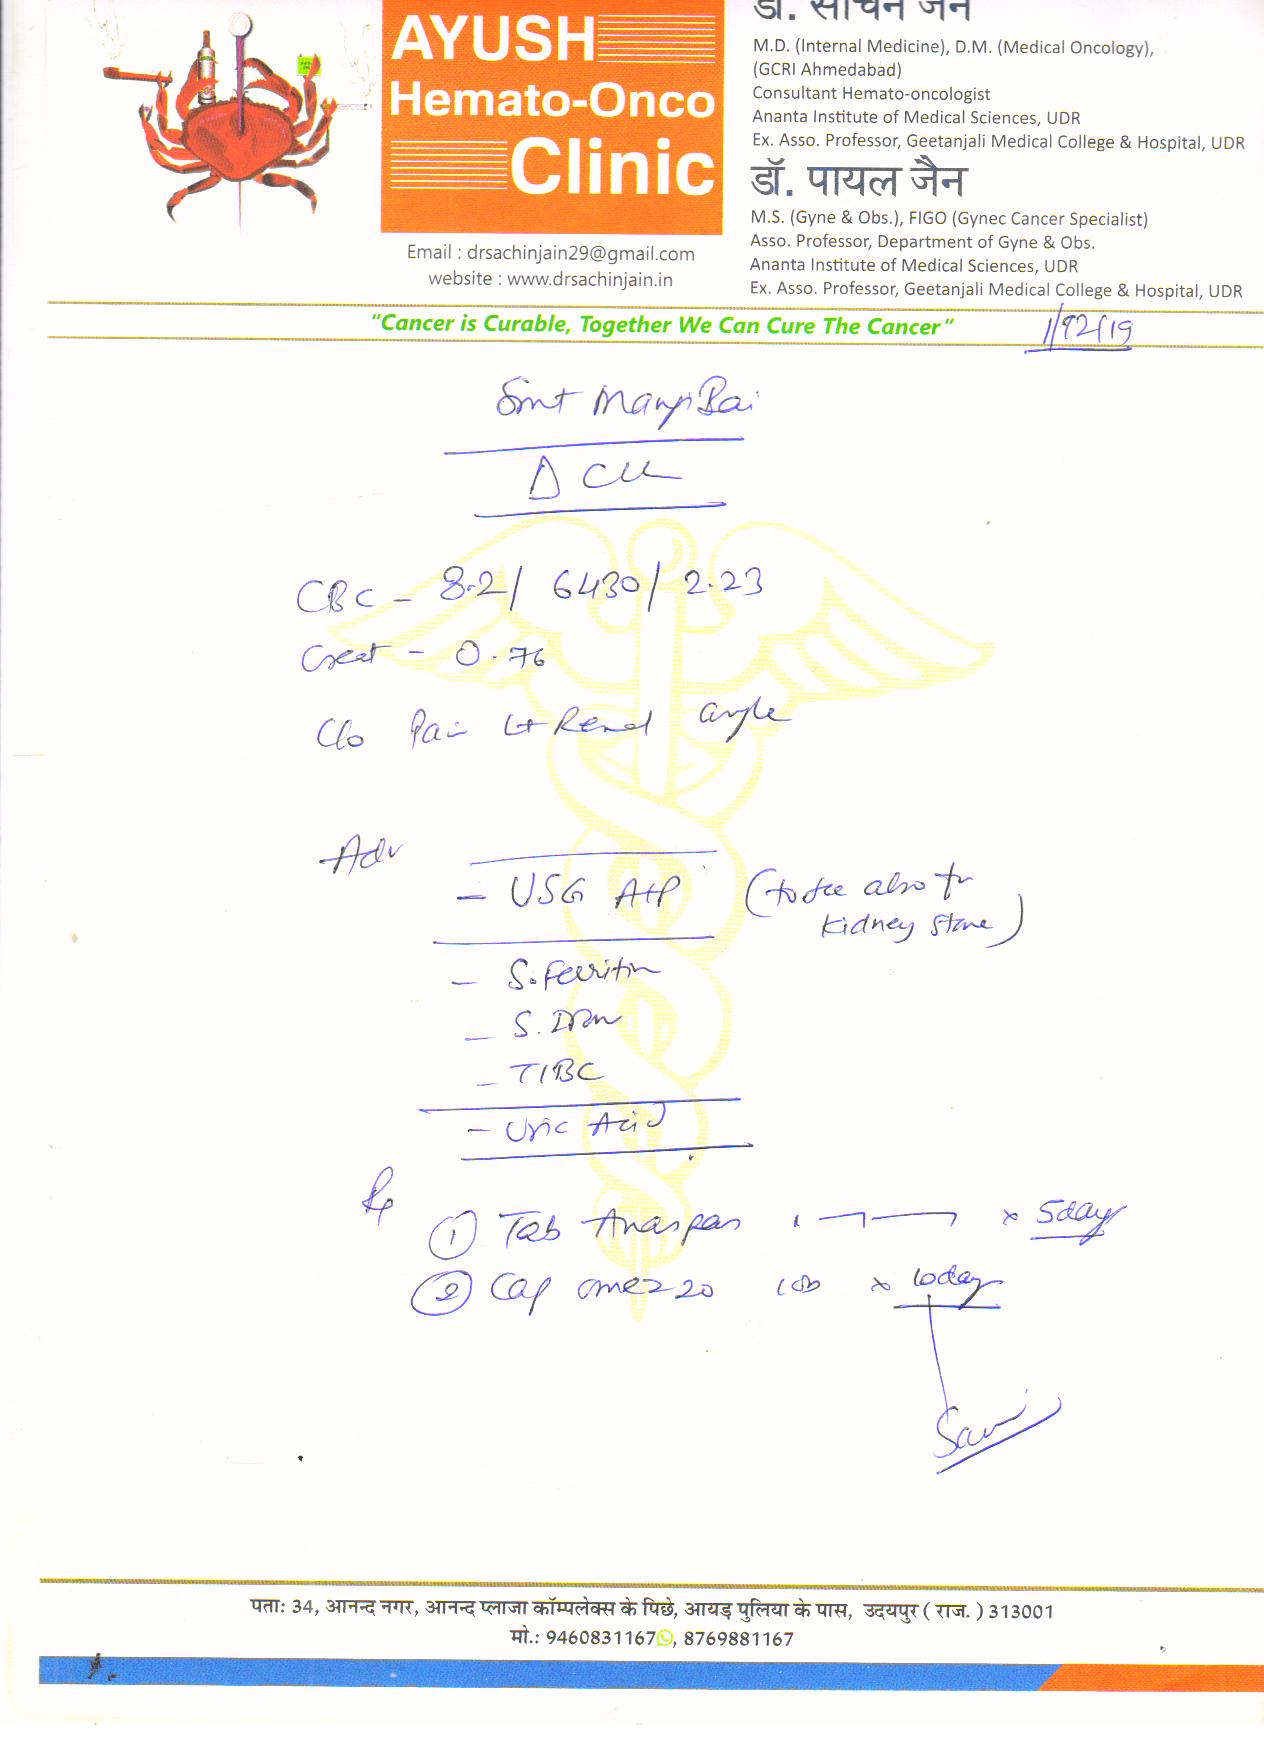 AYUSH
Hemato-Onco
Clinic
Email : drsachinjain29@gmail.com
website : www.drsachinjain.in
डॉ. सचिन जैन
M.D. (Internal Medicine), D.M. (Medical Oncology),
(GCRI Ahmedabad)
Consultant Hemato-oncologist
Ananta Institute of Medical Sciences, UDR
Ex. Asso. Professor, Geetanjali Medical College & Hospital, UDR
डॉ. पायल जैन
M.S. (Gyne & Obs.), FIGO (Gynec Cancer Specialist)
Asso. Professor, Department of Gyne & Obs.
Ananta Institute of Medical Sciences, UDR
Ex. Asso. Professor, Geetanjali Medical College & Hospital, UDR
"Cancer is Curable, Together We Can Cure The Cancer"
Smt Bai
Δ
CBC - 8.2/ 6430/ 2.23
Creat - 0.76
C/o Pain Lt Renal angle
Adv
- USG A+P (to see also for
kidney stone)
- S. Ferritin
- S. Iron
- TIBC
- Uric Acid
Rp
① Tab Anaspas 1-1-1 x 5day
② Cap Omez 20 x 10day
पता: 34, आनन्द नगर, आनन्द प्लाजा कॉम्पलेक्स के पिछे, आयड़ पुलिया के पास, उदयपुर ( राज. ) 313001
मो.: 9460831167, 8769881167